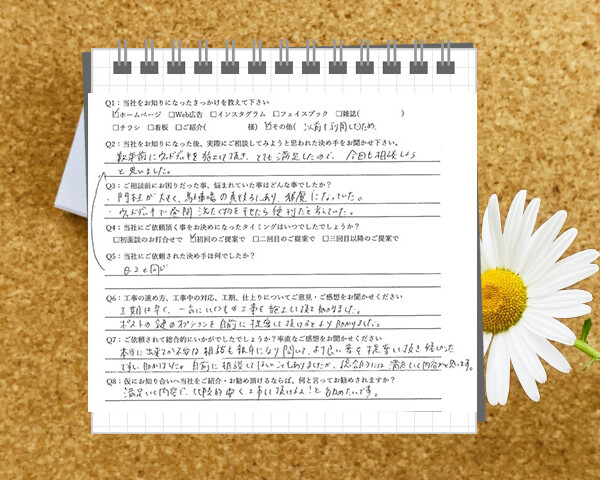 Q1：当社をお知りになったきっかけを教えて下さい
☑ホームページ □Web広告 □インスタグラム □フェイスブック □雑誌( )
□チラシ □看板 □ご紹介( 様) ☑その他( 以前も利用したため
Q2：当社をお知りになった後、実際にご相談してみようと思われた決め手をお聞かせ下さい。
数年前にウッドデッキを施工して頂き、とても満足したので、今回も相談しよう
と思いました。
Q3：ご相談前にお困りだった事、悩まれていた事はどんな事でしたか？
・門柱が大きく、駐車場の真ん中にあり、邪魔になっていた。
・ウッドデッキで全開 洗たく物を干せたら便利だと考えていた。
Q4：当社にご依頼頂く事をお決めになったタイミングはいつでしたでしょうか？
□初面談のお打合せで ☑初回のご提案で □二回目のご提案で □三回目以降のご提案で
Q5：当社にご依頼された決め手は何でしたか？
Q2と同じ
Q6：工事の進め方、工事中の対応、工期、仕上りについてご意見・ご感想をお聞かせください
工期は早く、一気に 工事を施工して頂き助かりました。
ポストの鍵のオプションを自前に提案して頂けるとより助かりました。
Q7：ご依頼されて総合的にいかがでしたでしょうか？率直なご感想をお聞かせください
本当に 相談も親身になり聞いて、より良い案を提案して頂き 助かった
です。 自前に相談して ありましたが、総合的には満足して内容かと思います。
Q8：仮にお知り合いへ当社をご紹介・お勧め頂けるならば、何と言ってお勧めされますか？
満足いく内容で、比較的安く工事して頂けるよ！と勧めたいです。